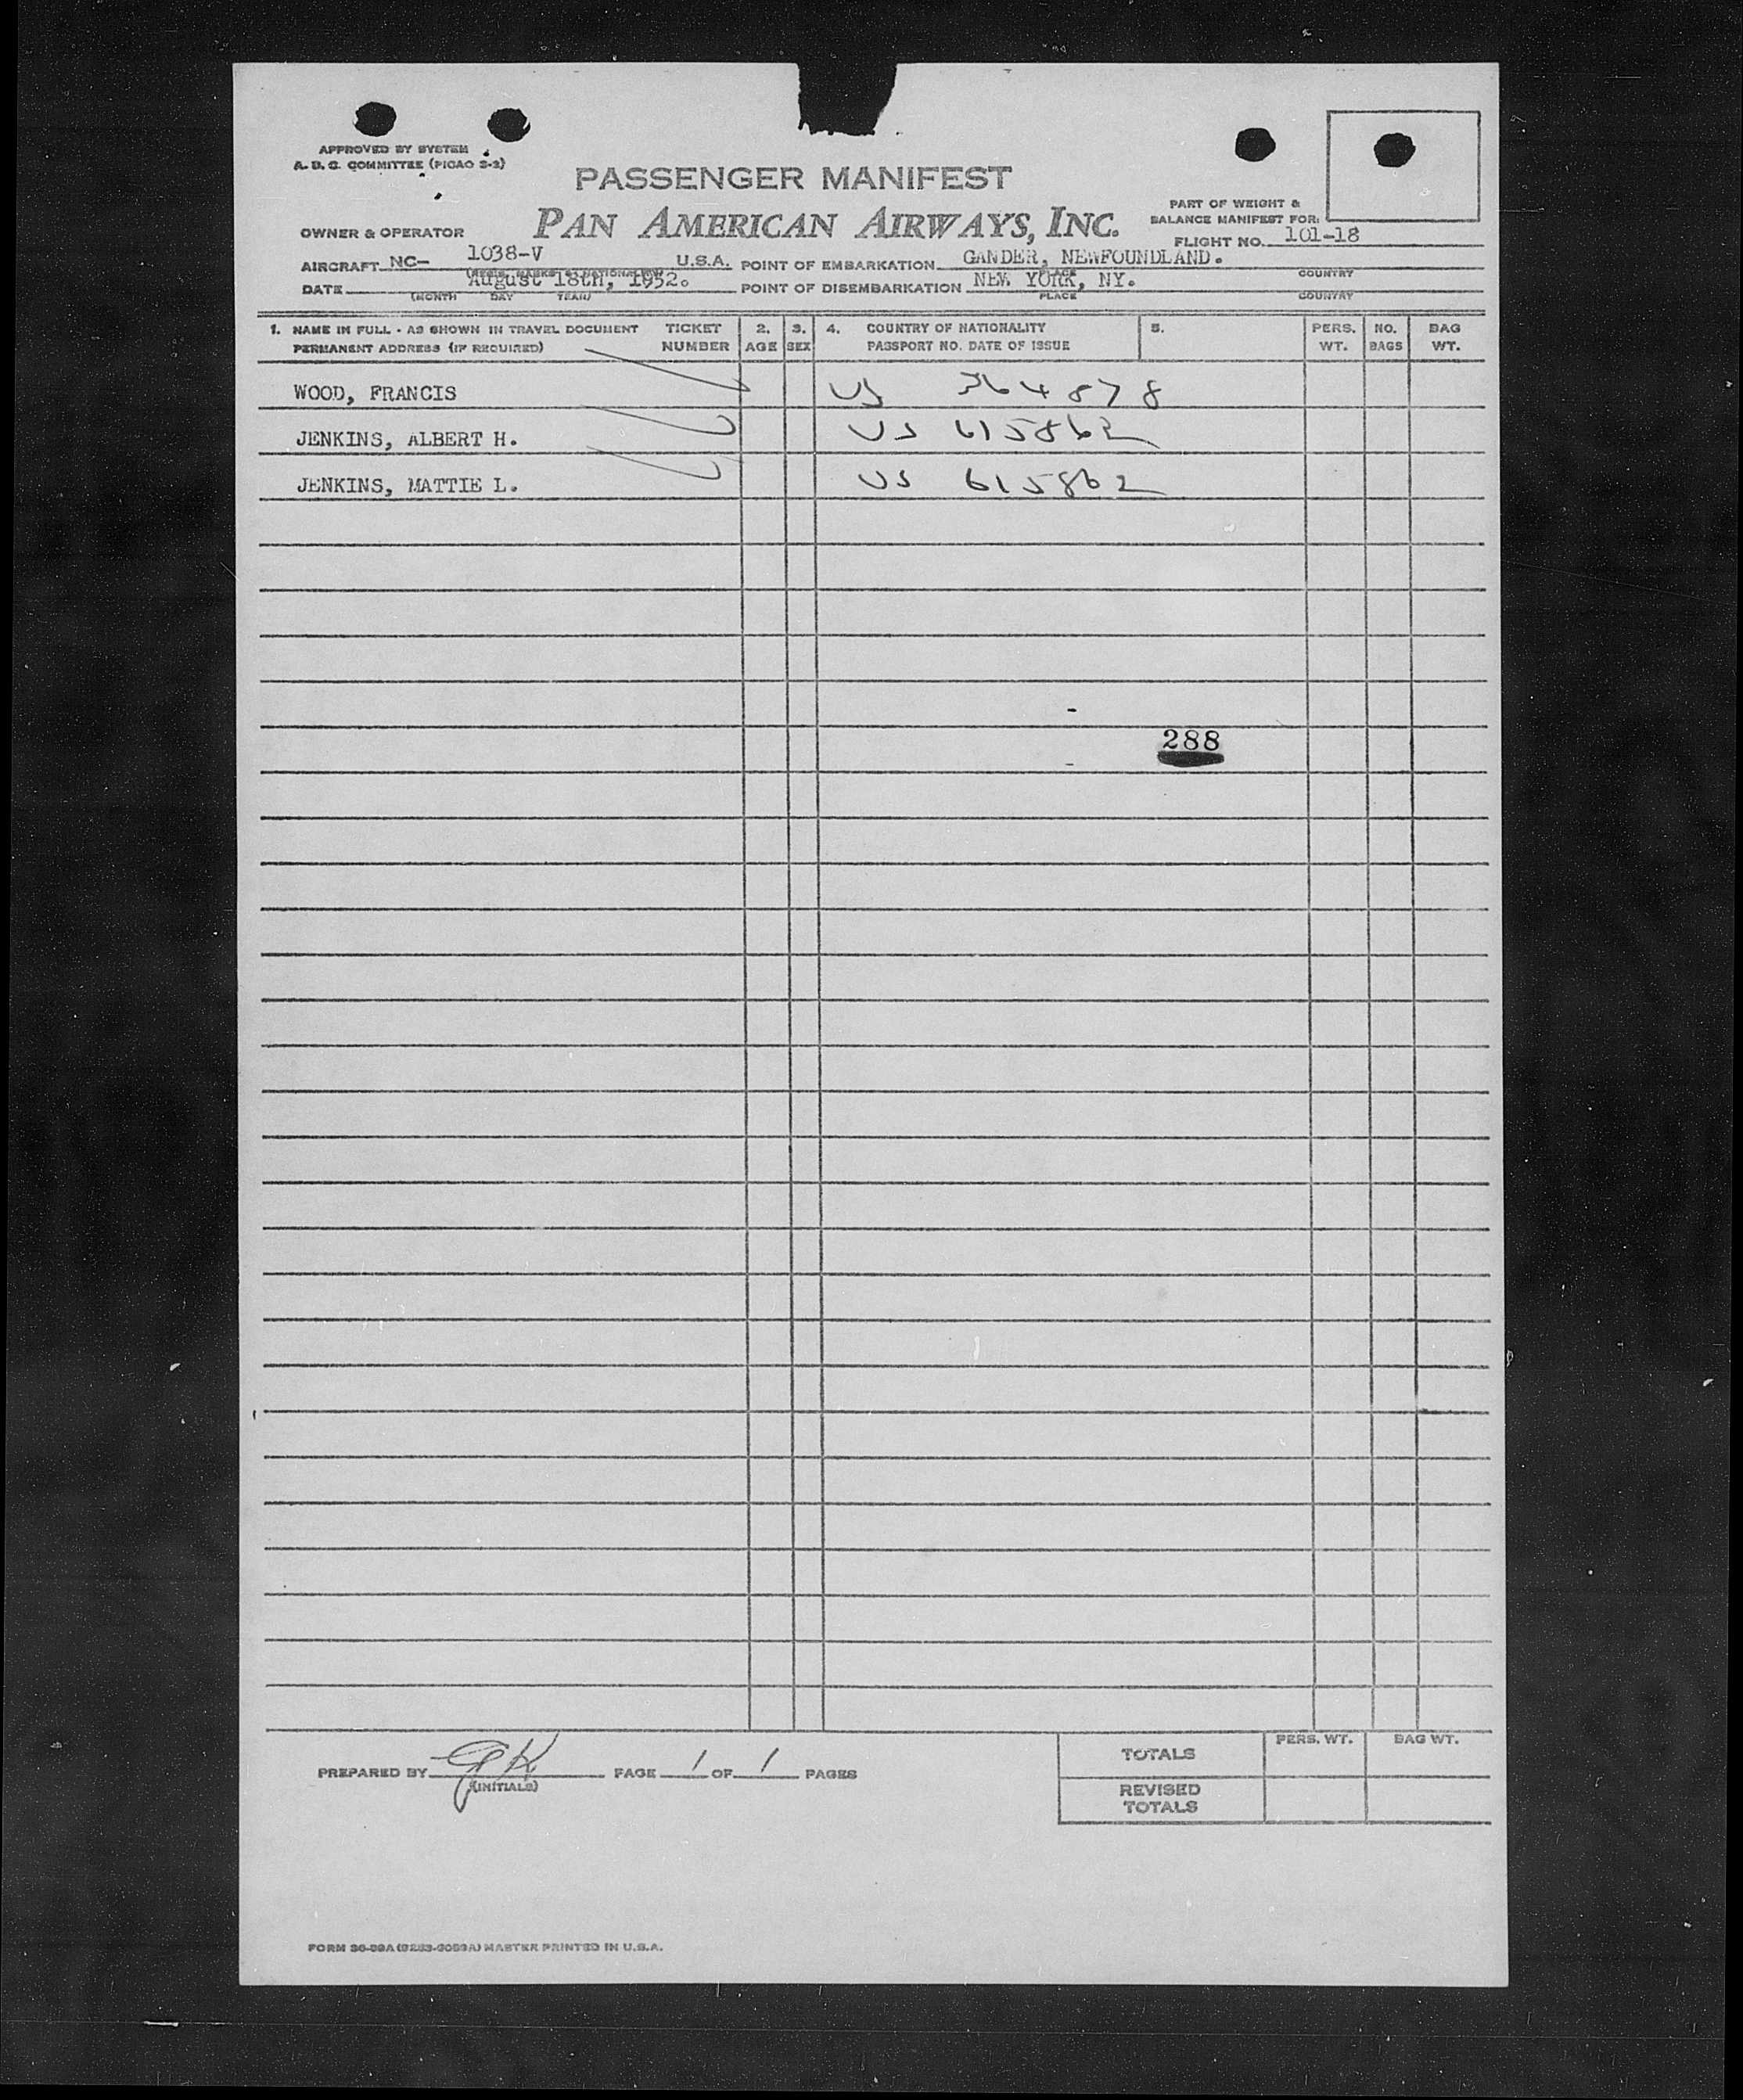 APPROVED BY SYSTEM
A. D. C. COMMITTEE (PICAO 2-2)
PASSENGER MANIFEST
PAN AMERICAN AIRWAYS, INC.
PART OF WEIGHT &
BALANCE MANIFEST FOR:
OWNER & OPERATOR
FLIGHT NO. 101-18
AIRCRAFT NC- 1038-V U.S.A. POINT OF EMBARKATION GANDER, NEWFOUNDLAND.
PLACE COUNTRY
DATE August 18th, 1952. POINT OF DISEMBARKATION NEW YORK, NY.
(MONTH DAY YEAR) PLACE COUNTRY
1. NAME IN FULL - AS SHOWN IN TRAVEL DOCUMENT TICKET 2. 3. 4. COUNTRY OF NATIONALITY 5. PERS. NO. BAG
PERMANENT ADDRESS (IF REQUIRED) NUMBER AGE SEX PASSPORT NO. DATE OF ISSUE WT. BAGS WT.
WOOD, FRANCIS US 364878
JENKINS, ALBERT H. US 615862
JENKINS, MATTIE L. US 615862
288
PERS. WT. BAG WT.
TOTALS
PREPARED BY PAGE 1 OF 1 PAGES
(INITIALS)
REVISED
TOTALS
MASTER PRINTED IN U.S.A.